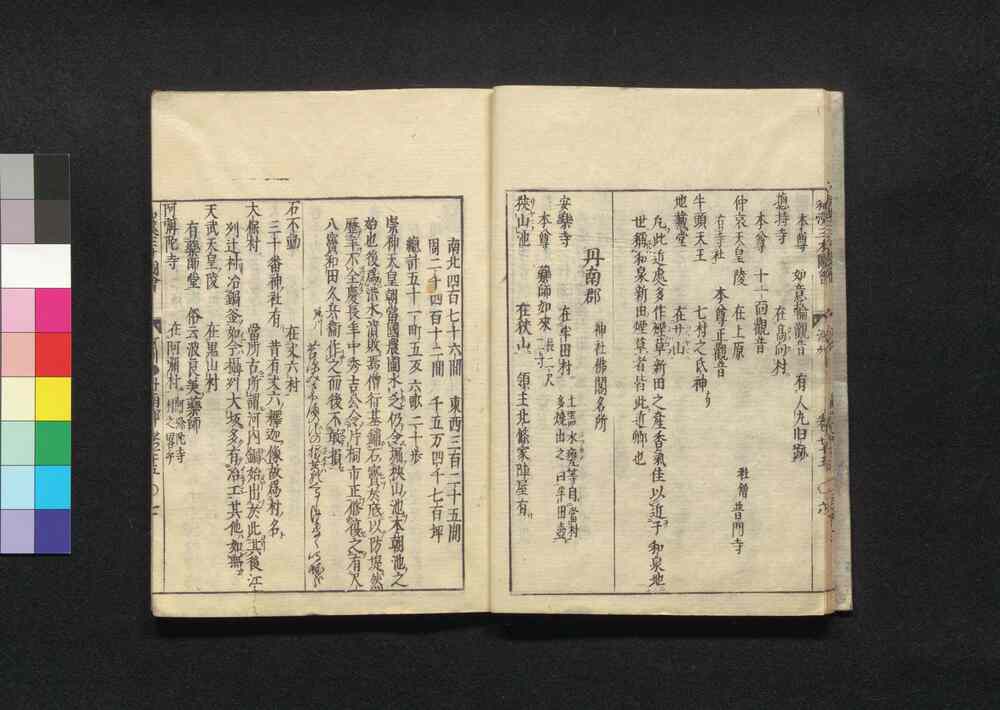 本尊 如意輪觀音 有人丸旧跡
惣持寺 在鳥的村
本尊 十一面觀音
仲哀天皇陵 在上原
社僧普門寺
本尊正觀音
牛頭天王 七村之氏神
地藏堂 在廿山
凡此近處多作煙草新田之産香氣佳以近于和泉地
世稱和泉新田煙草者皆此近鄉也
丹南郡 神社佛閣名所
安樂寺 在半田村
土黑水甕等自當村
多燒出之曰半田壺
本尊 藥師如來 長一尺二寸
狹山池 在狹山 領主北條家陣屋有
南北四百七十六間 東西三百二十五間
周二千四百十二間 千五万四千七百坪
總計五十一町五反六畝二十歩
崇神天皇朝當國農園水乏仍令堀狹山池本朝池之
始也後爲潜水潰敗焉僧行基鋪石實於底以防堤然
歷年不全慶長年中秀吉公令片桐市正脩復之有尺
八寶和田久兵衞作之而後不敢損
石不動 在丈六村
三十番神社有 昔有丈六釋迦像故爲村名
大保村 當所古所謂河内鍋始出於此其後江
列辻村冶鍋釜如今攝列大坂多有冶工其他如無
天武天皇陵 在黑山村
有藥師堂 俗云波良美藥師
阿彌陀寺 在阿彌村 阿彌陀寺村之畧乎